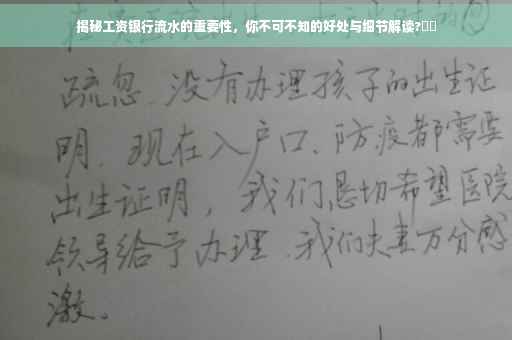 揭秘工资银行流水的重要性，你不可不知的好处与细节解读?
疏忽、没有办理孩子的出生证
明．现在入户口、防疫都需要
出生证明，我们恳切希望医院
领导给予办理．我们夫妻万分感
激。